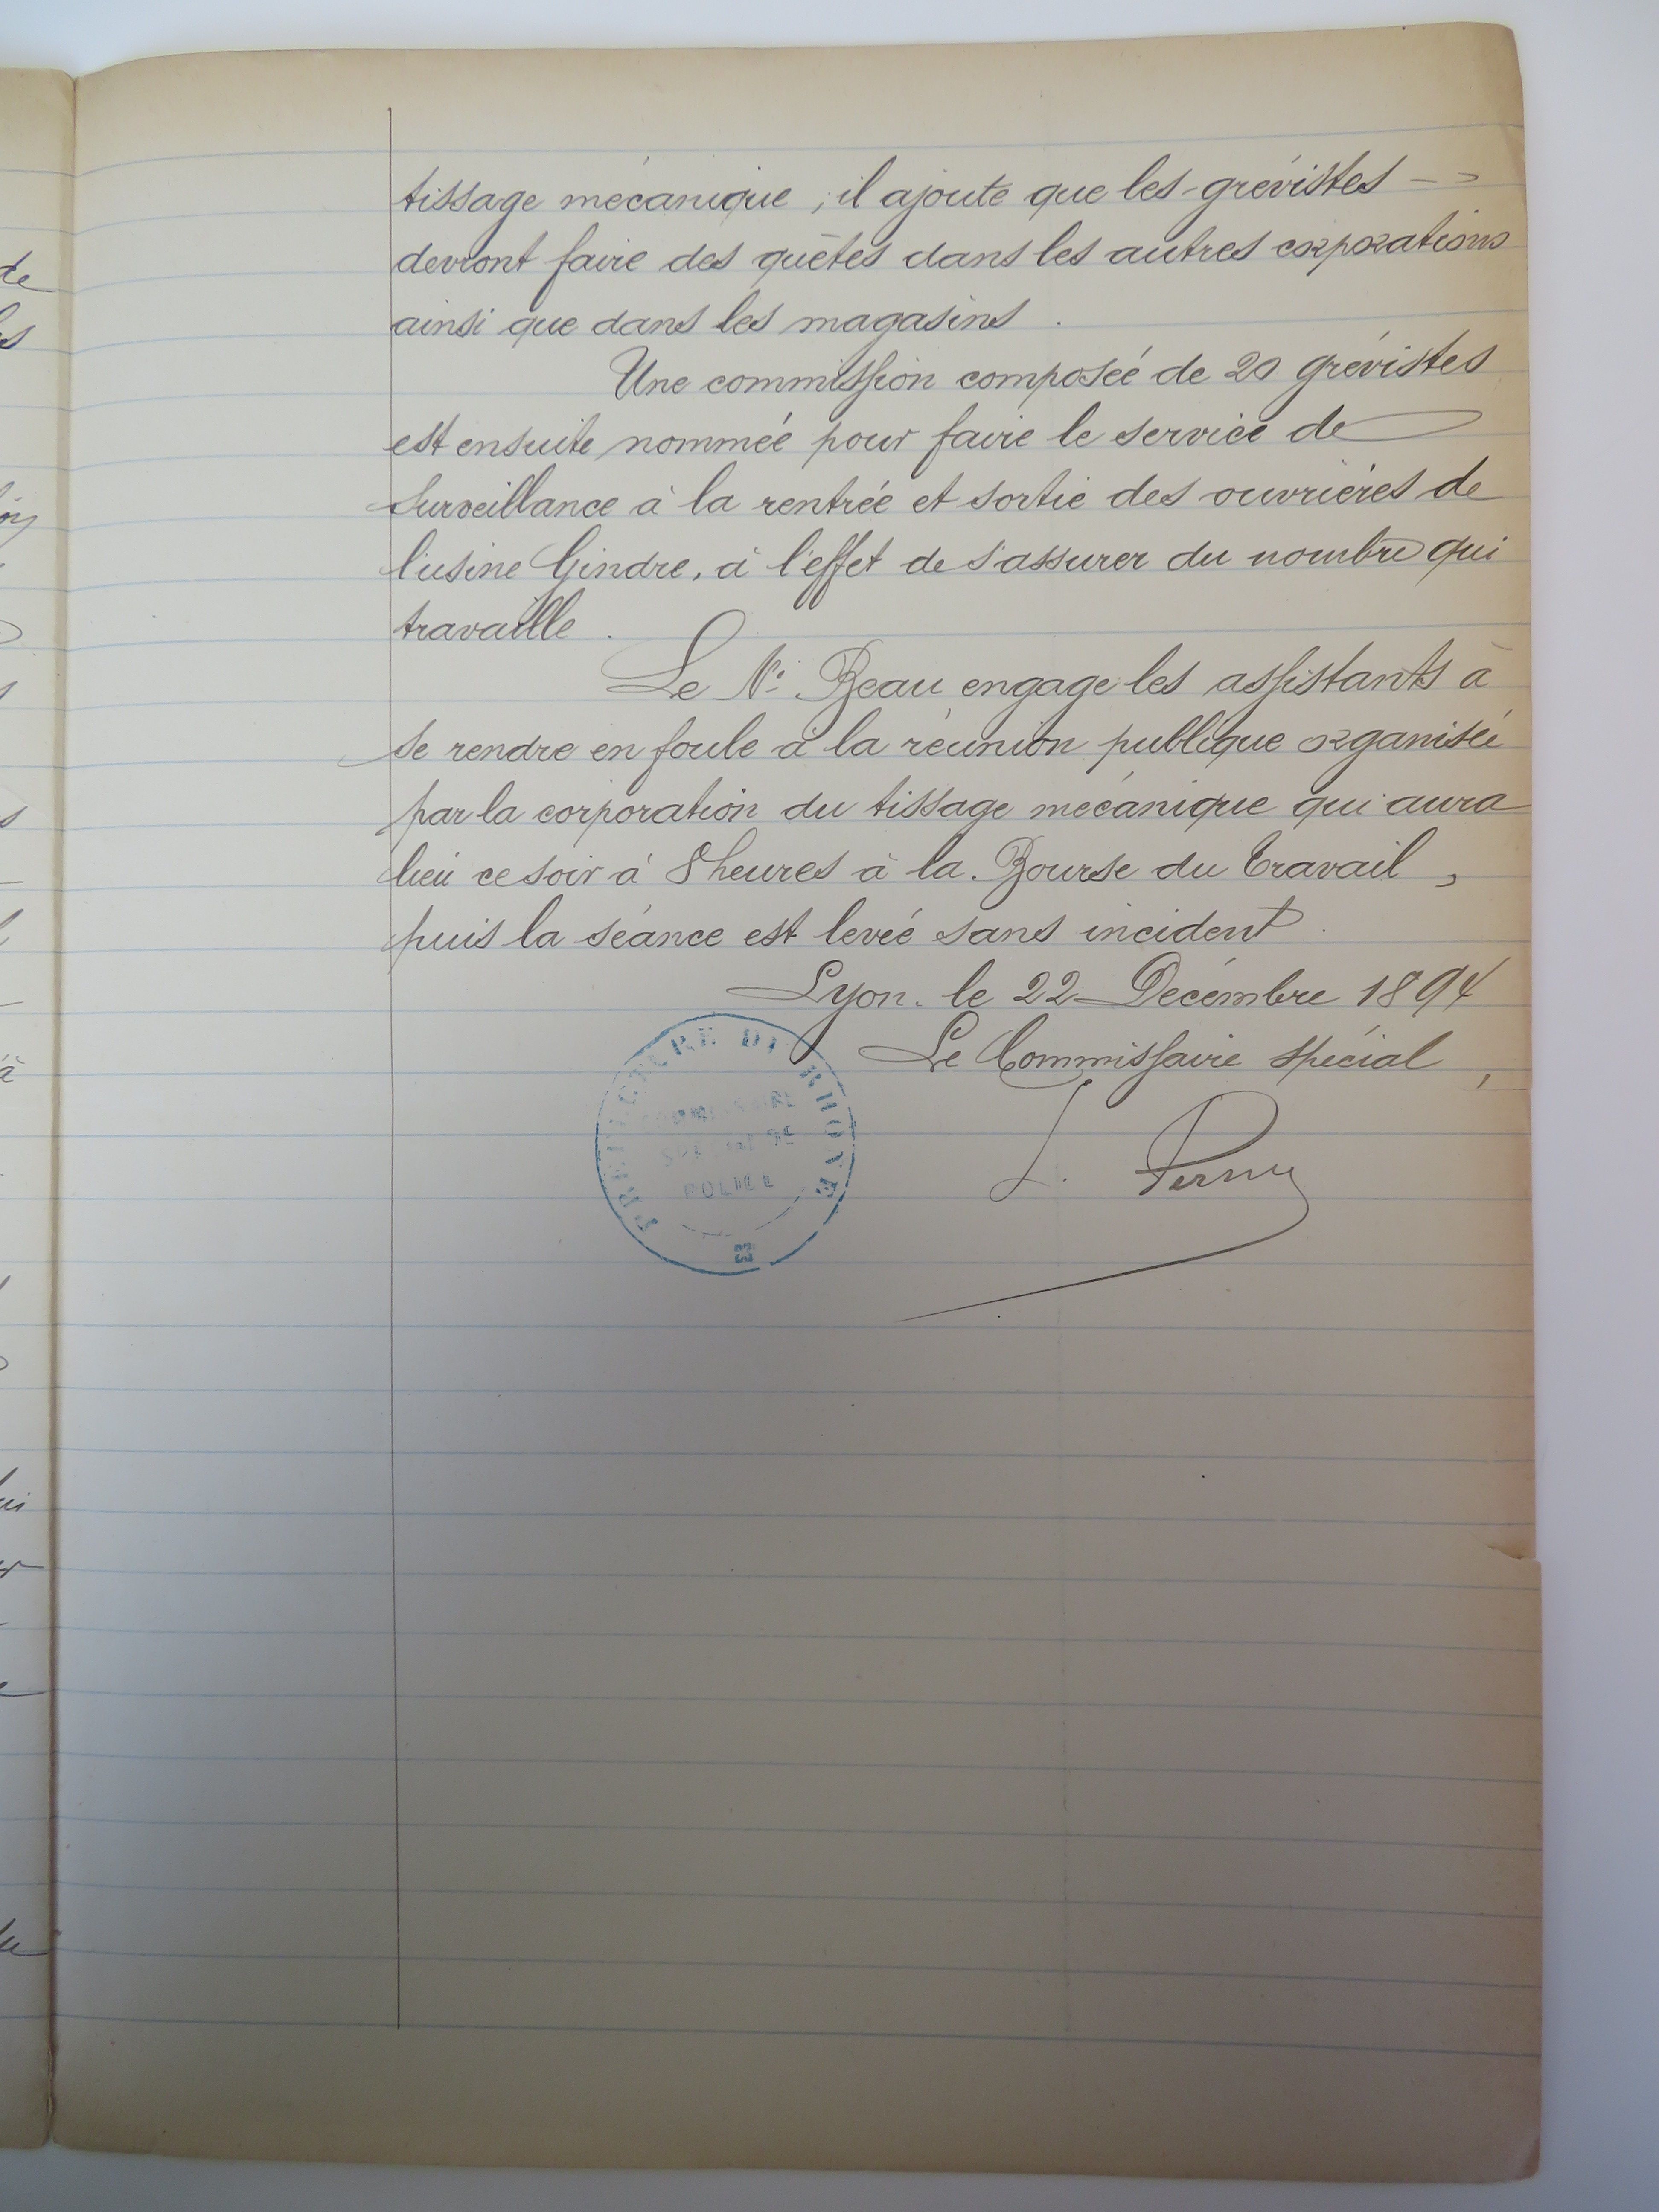 tissage mécanique ; il ajoute que les grévistes
devront faire des quêtes dans les autres corporations
ainsi que dans les magasins.
Une commission composée de 20 grévistes
est ensuite nommée pour faire le service de
surveillance à la rentrée et sortie des ouvrières de
l'usine Gindre, à l'effet de s'assurer du nombre qui
travaille.
Le Né Beau engage les assistants à
se rendre en foule à la réunion publique organisée
par la corporation du tissage mécanique qui aura
lieu ce soir à 8 heures à la Bourse du Travail,
puis la séance est levée sans incident.
Lyon. le 22 Décembre 1894
Le Commissaire spécial,
PRÉFECTURE DU RHONE
COMMISSAIRE
SPÉCIAL DE
POLICE